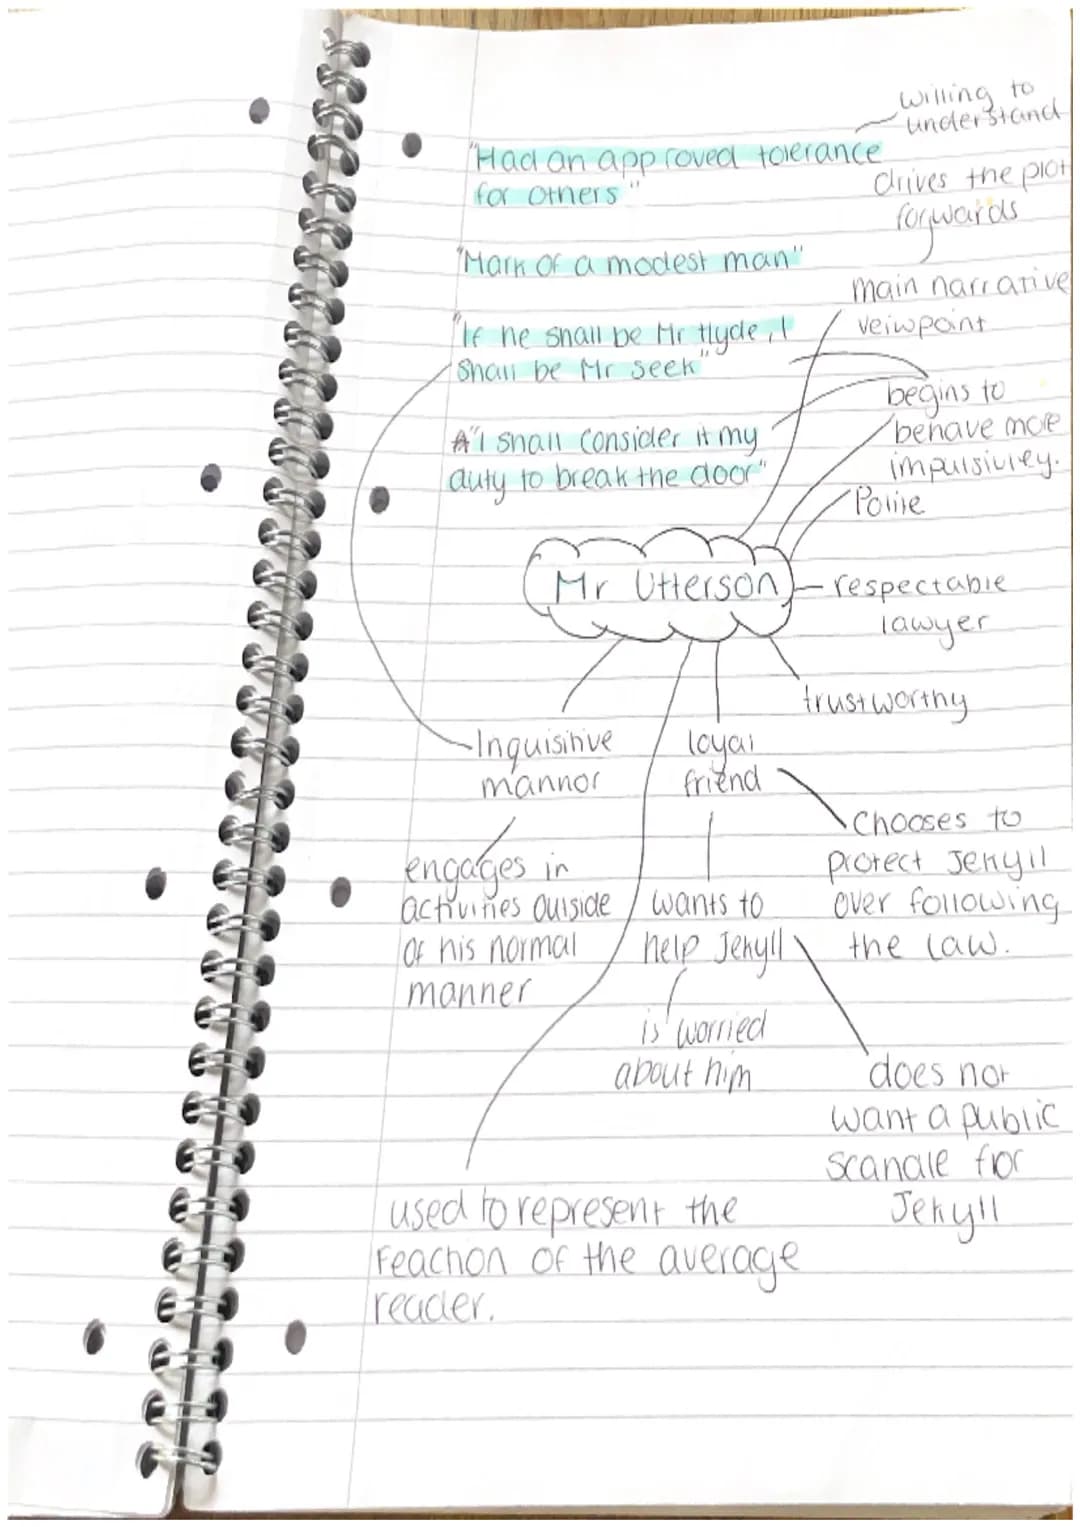 willing to
understand
"Had an approved tolerance
for others"
drives the plot
forwards
"Mark of a modest man"
main narrative
veiwpoint
"If he shall be Mr Hyde, I
shall be Mr seek"
begins to
behave more
impulsivley.
A"I shall consider it my
duty to break the door"
Polite
Mr Utterson
respectable
lawyer
trustworthy
Inquisitive
mannor
loyal
friend
Chooses to
protect Jekyll
over following
the law.
engages in
activities outside
of his normal
manner
wants to
help Jekyll
is worried
about him
does not
want a public
scandle for
Jekyll
used to represent the
reaction of the average
reader.